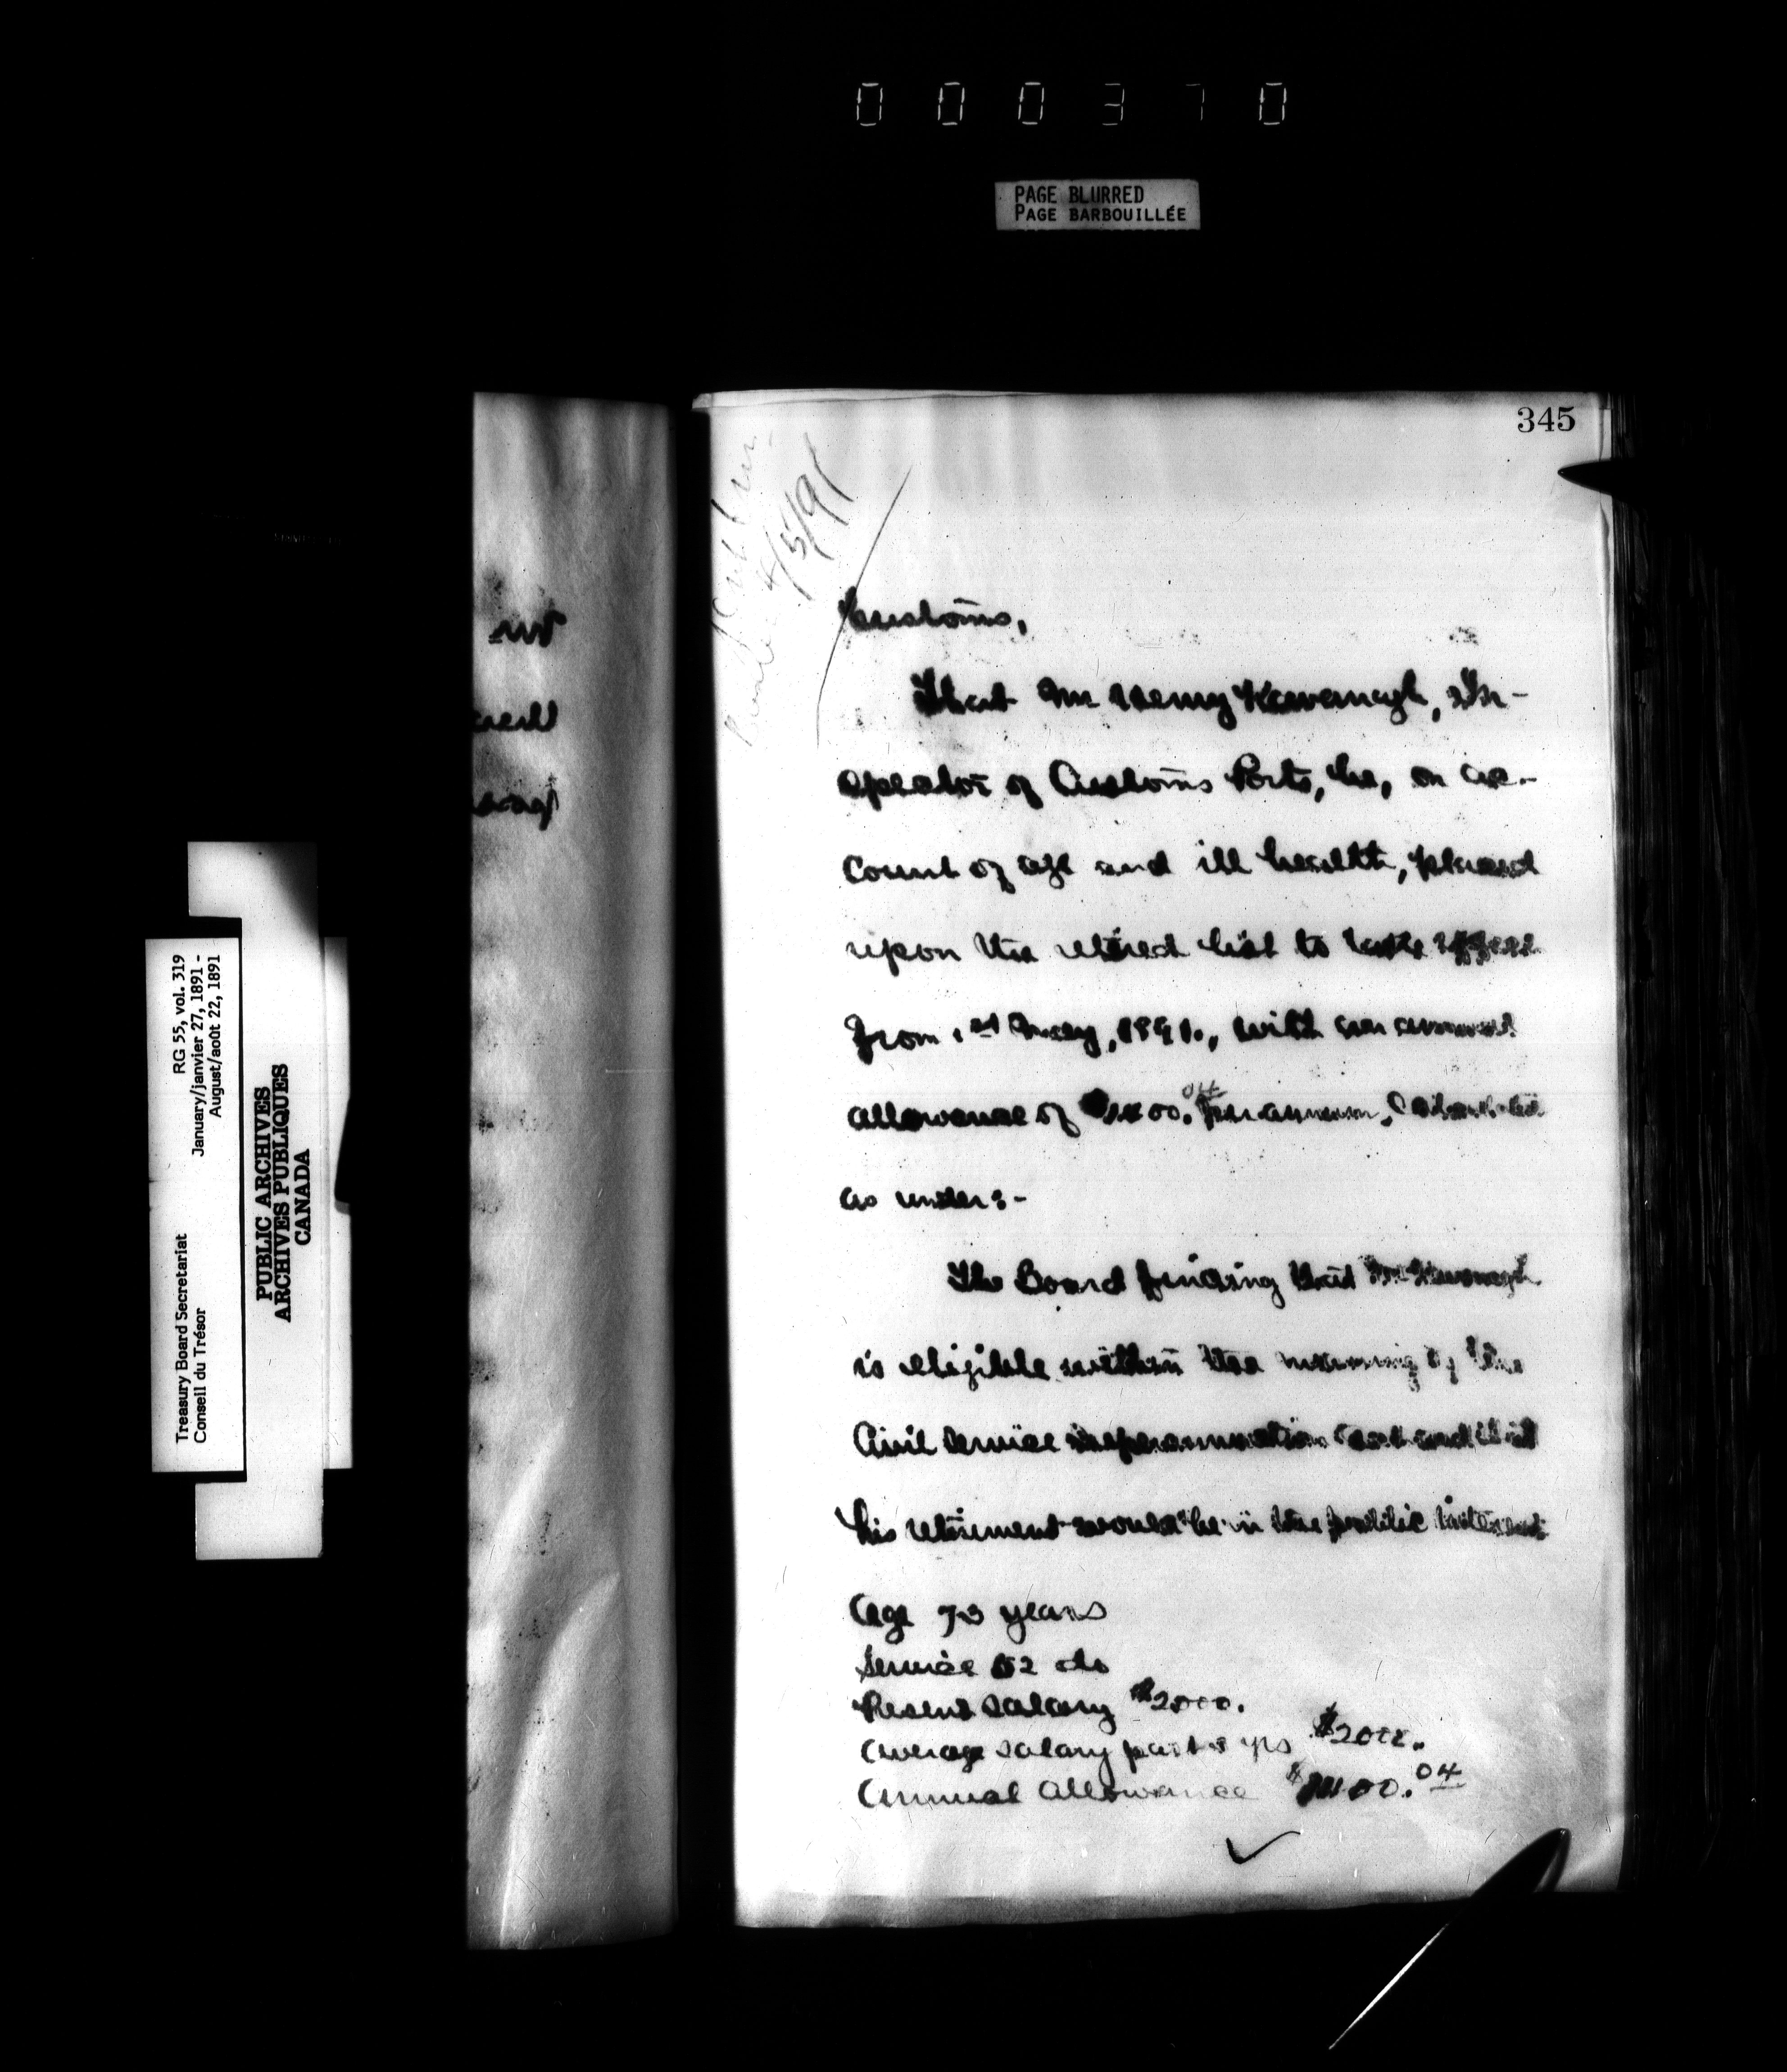 000370
PAGE BLURRED
PAGE BARBOUILLÉE
345
4/5/91
Customs,
That Mr Henry Kavanagh, In-
spector of Customs Ports, be, on ac-
count of age and ill health, placed
upon the retired list to take effect
from 1st May, 1891., with an annual
allowance of 00.04 per annum, Calculated
as under:-
The Board finding that Mr Kavanagh
is eligible within the meaning of the
Civil Service Superannuation Act and that
his retirement would be in the public interest
Age 73 years
Service 52 do
Present Salary $2000.
Average salary past 3 yrs $2000.
Annual Allowance $1400.04
RG 55, vol. 319
January/janvier 27, 1891 -
August/août 22, 1891
Treasury Board Secretariat
Conseil du Trésor
PUBLIC ARCHIVES
ARCHIVES PUBLIQUES
CANADA